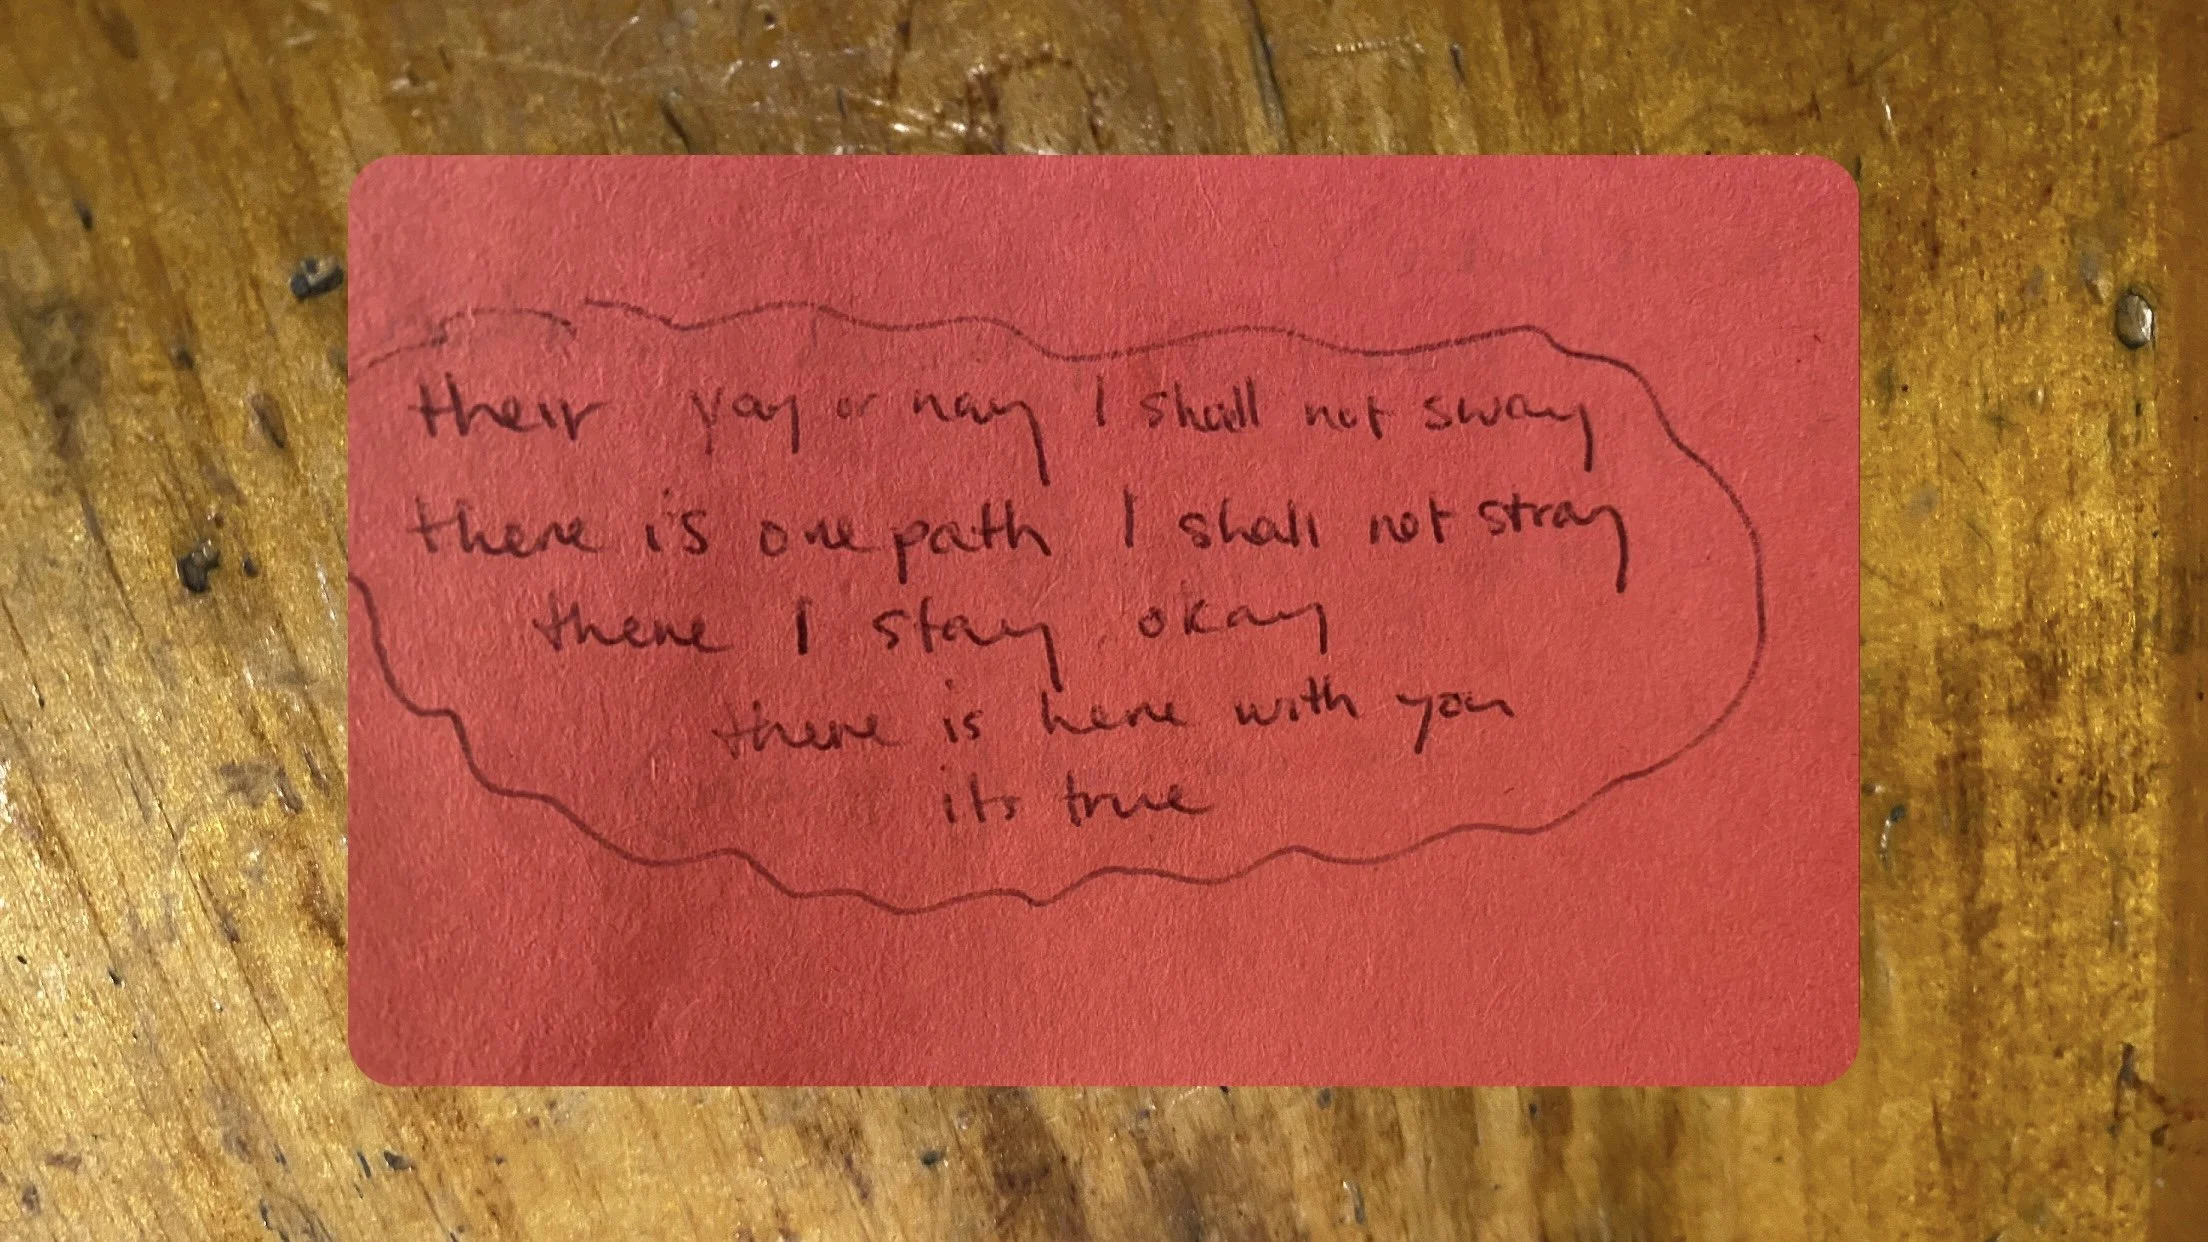 their yay or nay I shall not sway
there is one path I shall not stray
there I stay okay
there is here with you
its true